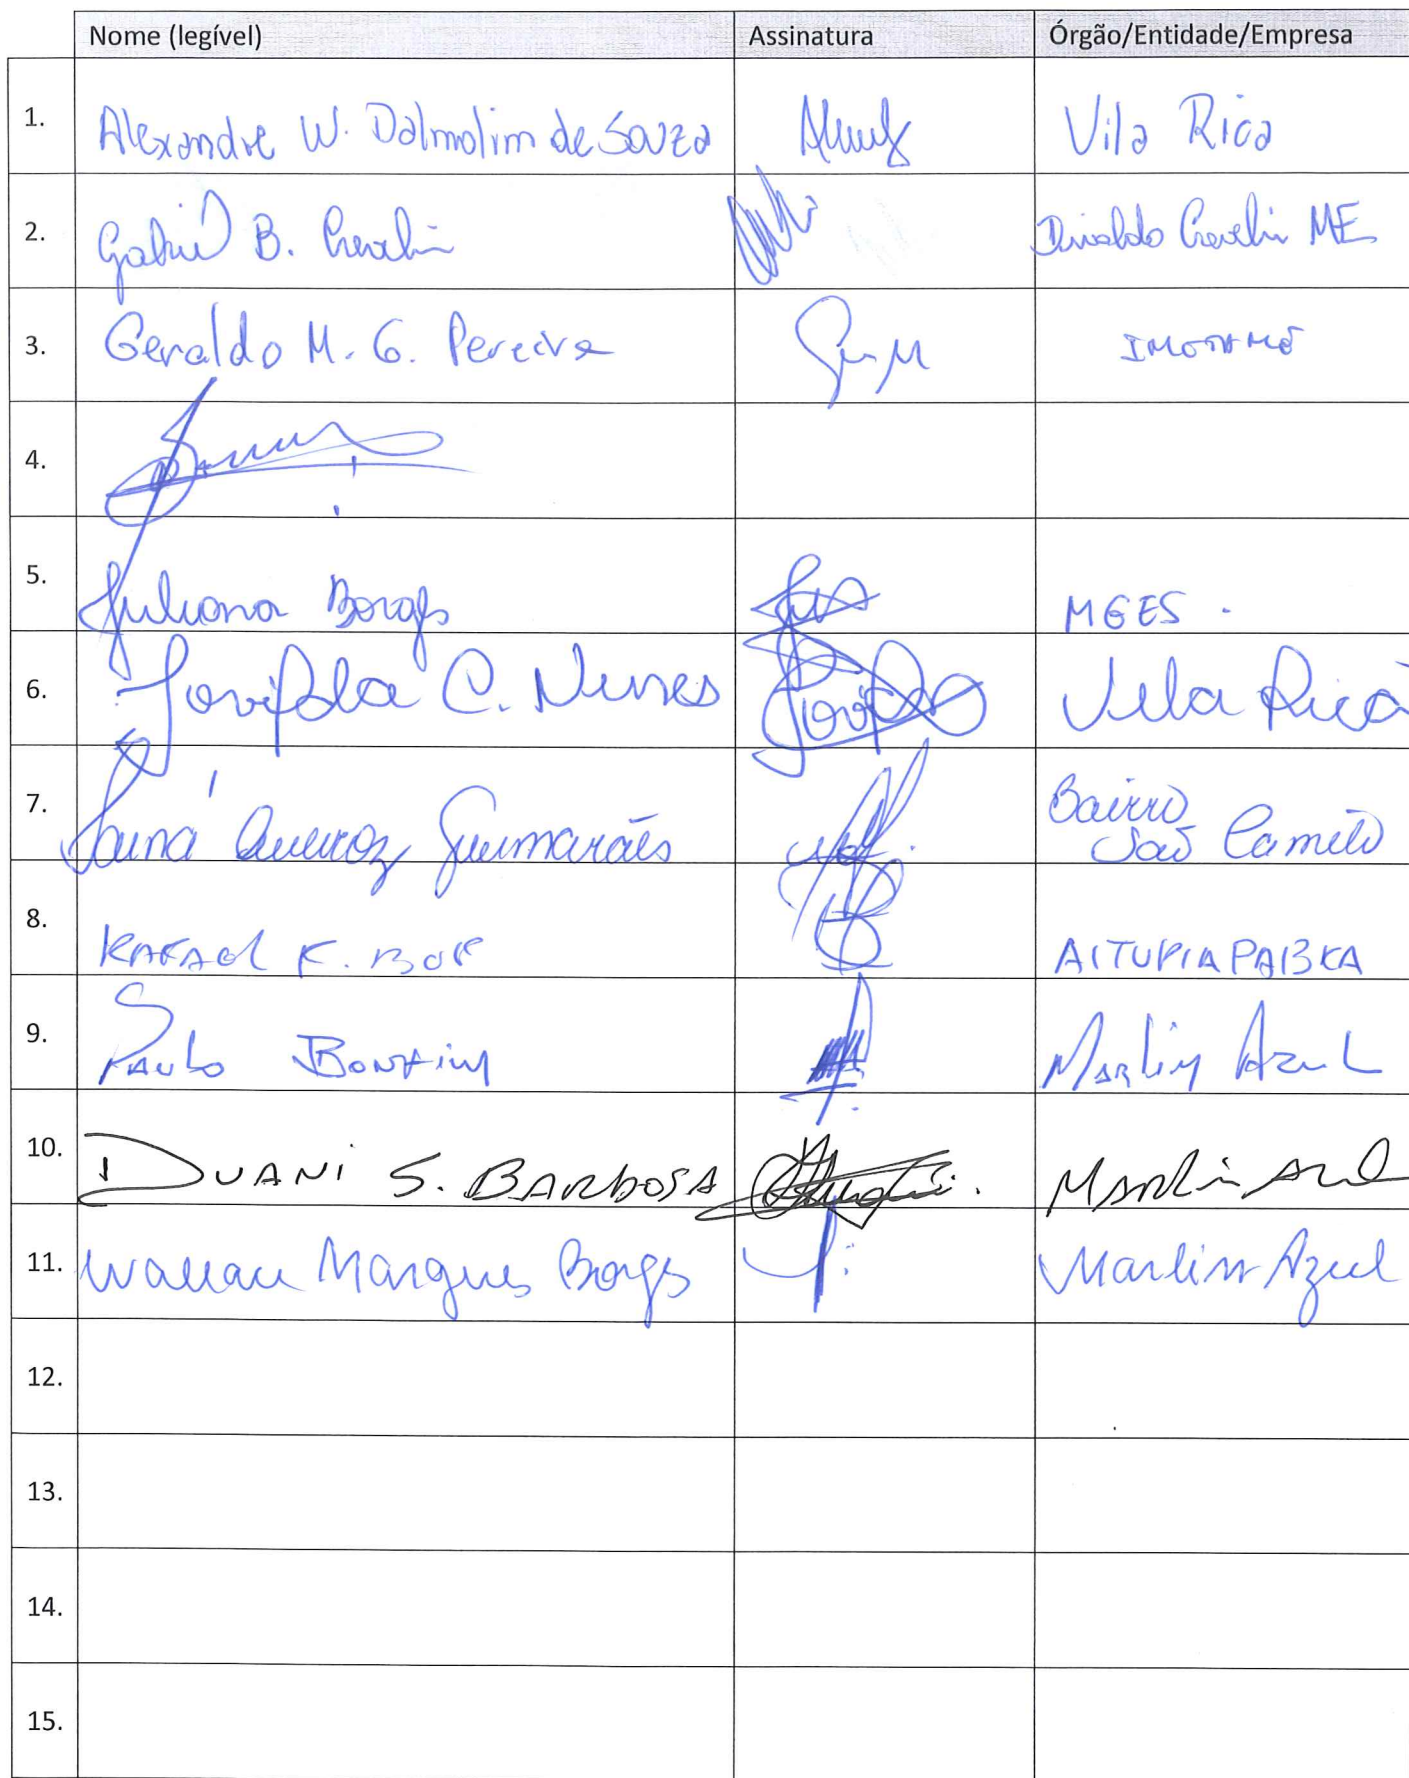 Nome (legível) Assinatura Órgão/Entidade/Empresa
1. Alexandre W. Dalmolim de Souza Vila Rica
2. Gabriel B. ME
3. Geraldo M. G. Pereira
4.
5. Juliana Borges MGES.
6. C. Nunes Vila Rica
7. Queiroz Guimarães Bairro
São Camilo
8. Rafael F.
9. Paulo Bonfim Marlin Azul
10. DUANI S. BARBOSA Marlin Azul
11. Wallace Marques Borges Marlin Azul
12.
13.
14.
15.